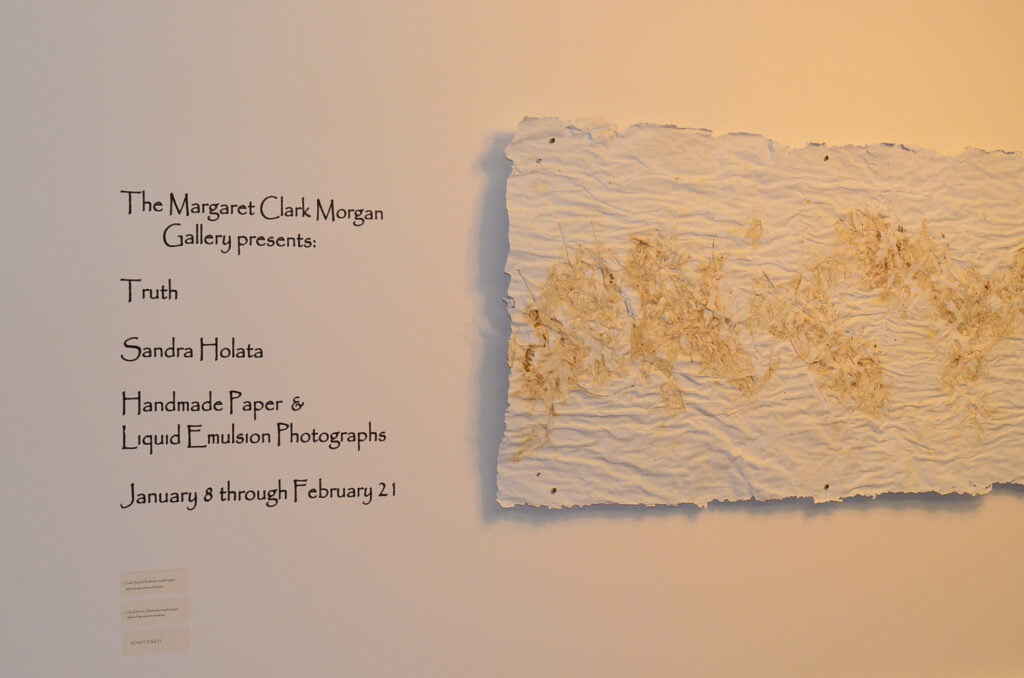 The Margaret Clark Morgan
Gallery presents:
Truth
Sandra Holata
Handmade Paper &
Liquid Emulsion Photographs
January 8 through February 21
DO NOT TOUCH